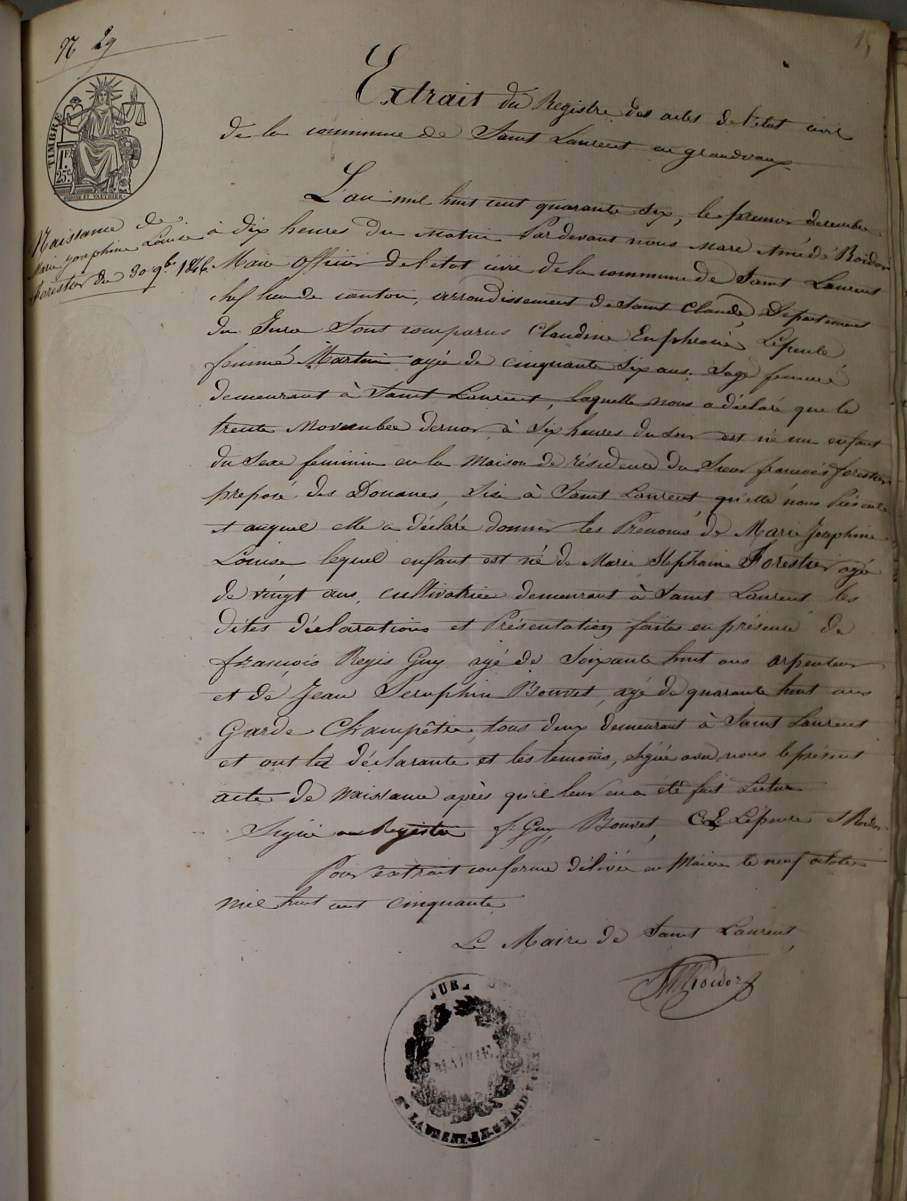 N 29
15
TIMBRE
1F.
25c.
Extrait du Registre des actes de l'état civil
de la commune de Saint Laurent en grandvaux
Naissance de
Marie Josephine Louise
Forestier du 30 9bre 1846.
L'an mil huit cent quarante six, le premier décembre
à dix heures du matin Pardevant nous Marc Amédé Roidor
Maire officier de l'état civil de la commune de Saint Laurent
chef lieu de canton, arrondissement de Saint Claude Département
du Jura Sont comparus Claudine Euphrasie Lépeule
femme Martin agée de cinquante six ans, Sage femme
demeurant à Saint Laurent, laquelle nous a déclaré que le
trente Novembre dernier, à Six heures du soir est né un enfant
du Sexe feminin en la Maison de résidence du Sieur françois forestier
préposé des Douanes, Sise à Saint Laurent qu'elle nous Présente
et auquel elle a déclaré donner les Prenoms de Marie Josephine
Louise lequel enfant est né de Marie Stephanie Forestier agée
de vingt ans, cultivatrice demeurant à Saint Laurent les
dites déclarations et Présentation faites en présence de
françois Regis Guy agé de Soixante huit ans arpenteur
et de Jean Seraphin Bouvet, agé de quarante huit ans
Garde Champêtre, tous deux demeurant à Saint Laurent
et ont la déclarante et les temoins, signé avec nous le présent
acte de naissance après qu'il leur en a été fait Lecture
Signé au Registre f. Guy, Bouvet, C E Lépeule et Roidor
Pour extrait conforme délivré en Mairie le neuf octobre
mil huit cent cinquante
Le Maire de Saint Laurent,
JURA
MAIRIE
ST LAURENT-EN-GRANDVAUX